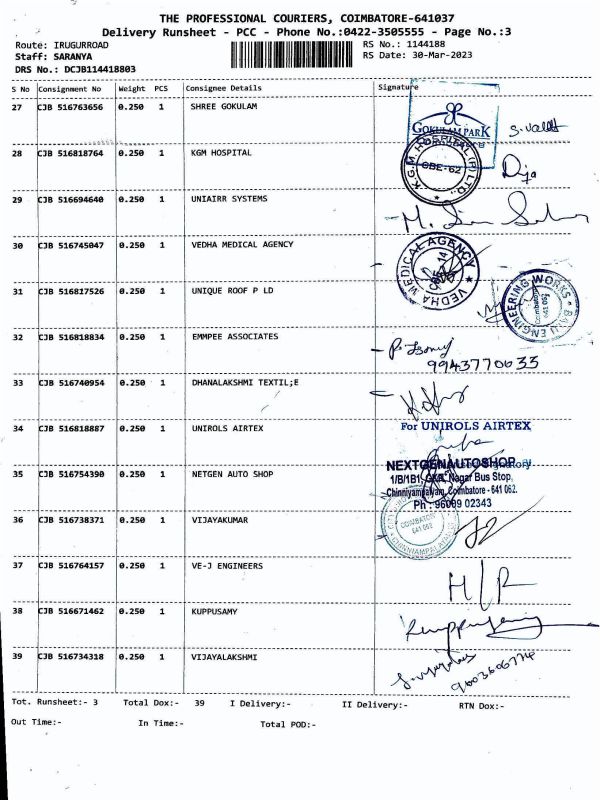 THE PROFESSIONAL COURIERS, COIMBATORE-641037
Delivery Runsheet - PCC - Phone No.:0422-3505555 - Page No.:3
Route: IRUGURROAD
RS No.: 1144188
Staff: SARANYA
RS Date: 30-Mar-2023
DRS No.: DCJB114418803
S No Consignment No Weight PCS Consignee Details Signature
27 CJB 516763656 0.250 1 SHREE GOKULAM
GOKULAM PARK
28 CJB 516818764 0.250 1 KGM HOSPITAL
K.G.M. HOSPITAL (P) LTD.,
CBE-62
29 CJB 516694640 0.250 1 UNIAIRR SYSTEMS
30 CJB 516745047 0.250 1 VEDHA MEDICAL AGENCY
VEDHA MEDICAL AGENCY
31 CJB 516817526 0.250 1 UNIQUE ROOF P LD
ENGINEERING WORKS
Coimbatore
641 062
32 CJB 516818834 0.250 1 EMMPEE ASSOCIATES
9943770633
33 CJB 516740954 0.250 1 DHANALAKSHMI TEXTIL;E
34 CJB 516818887 0.250 1 UNIROLS AIRTEX
For UNIROLS AIRTEX
35 CJB 516754390 0.250 1 NETGEN AUTO SHOP
NEXTGENAUTOSHOP
1/B/1B1, Nagar Bus Stop,
Chinniyampalayam, Coimbatore - 641 062.
Ph : 96009 02343
36 CJB 516738371 0.250 1 VIJAYAKUMAR
COIMBATORE
641 062
CHINNIAMPALAYAM
37 CJB 516764157 0.250 1 VE-J ENGINEERS
38 CJB 516671462 0.250 1 KUPPUSAMY
39 CJB 516734318 0.250 1 VIJAYALAKSHMI
9603606774
Tot. Runsheet:- 3 Total Dox:- 39 I Delivery:- II Delivery:- RTN Dox:-
Out Time:- In Time:- Total POD:-